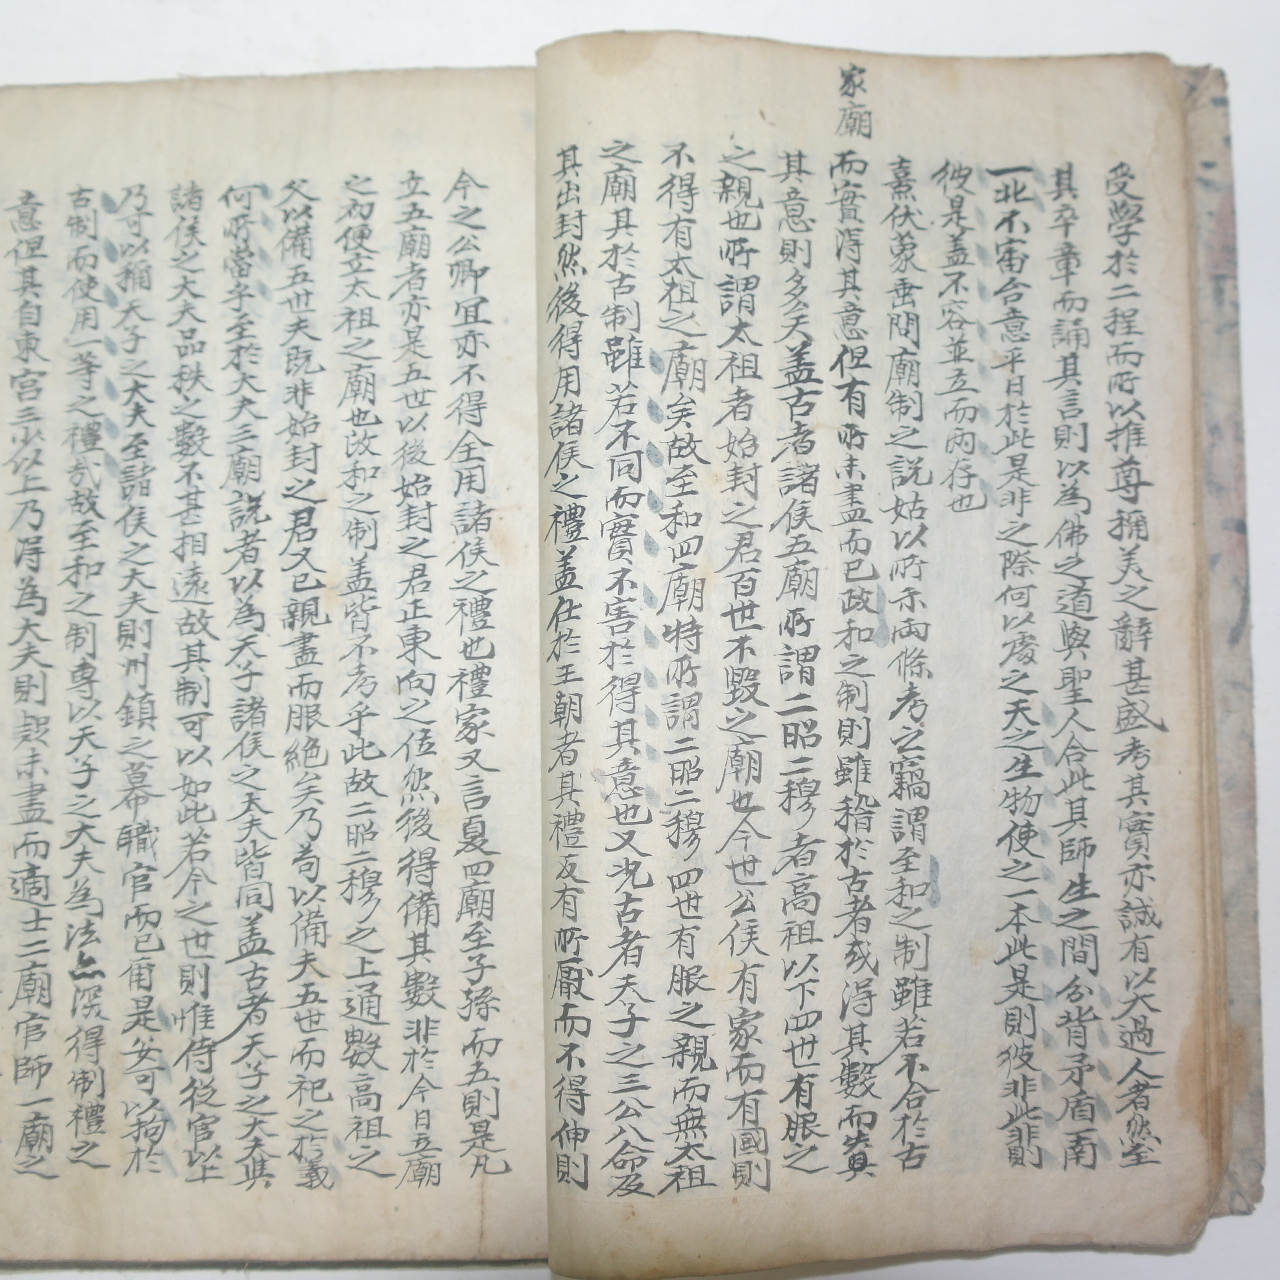 家廟
受學於二程而所以推尊稱美之辭甚盛考其實亦誠有以大過人者然至
其卒章而誦其言則以為佛之道與聖人合此其師生之間分背矛盾南
一北不審合意平日於此是非之際何以處之天之生物使之一本此是則彼非此非則
彼是盖不容並立而兩存也
熹伏蒙垂問廟制之說姑以所示兩條考之竊謂至和之制雖若不合於古
而實淂其意但有所未盡而已政和之制則雖稽於古者或淂其數而失其
其意則多矣盖古者諸侯五廟所謂二昭二穆者高祖以下四世有服之
之親也所謂太祖者始封之君百世不毀之廟也今世公侯有家而有國則
不得有太祖之廟矣故至和四廟特所謂二昭二穆四世有服之親而無太祖
之廟其於古制雖若不同而實不害於得其意也又况古者天子之三公八命及
其出封然後得用諸侯之禮盖仕於王朝者其禮反有所厭而不得伸則
今之公卿宜亦不得全用諸侯之禮也禮家又言夏四廟至子孫而五則是凡
立五廟者亦是五世以後始封之君正東向之位然後得備其數非於今日立廟
之初便立太祖之廟也政和之制盖皆不考乎此故二昭二穆之上通數高祖之
父以備五世夫既非始封之君又已親盡而服絶矣乃苟以備夫五世而祀之於義
何所當乎至於大夫三廟說者以為天子諸侯之大夫皆同盖古者天子之大夫與
諸侯之大夫品秩之數不甚相遠故其制可以如此若今之世則惟侍從官以上
乃可以稱天子之大夫至諸侯之大夫則州鎮之幕職官而已甭是安可以拘於
古制而使用一等之禮哉故至和之制專以天子之大夫為法点深得制禮之
意但其自東宮三少以上乃淂為大夫則疑未盡而適士二廟官師一廟之